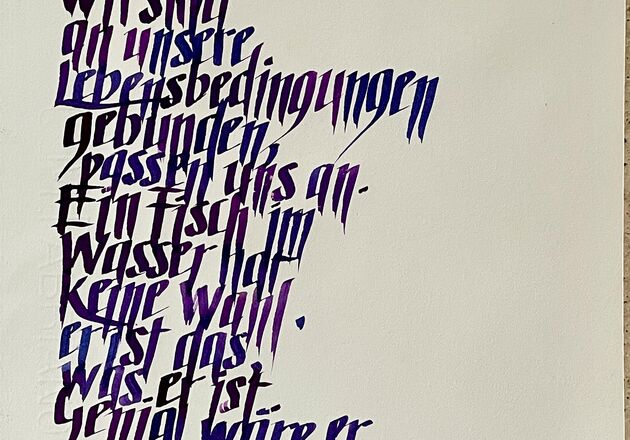 Wir sind
an unsere
Lebensbedingungen
gebunden,
passen uns an.
Ein Fisch im
Wasser hat
keine Wahl.
er ist das,
was er ist
Genial wäre er